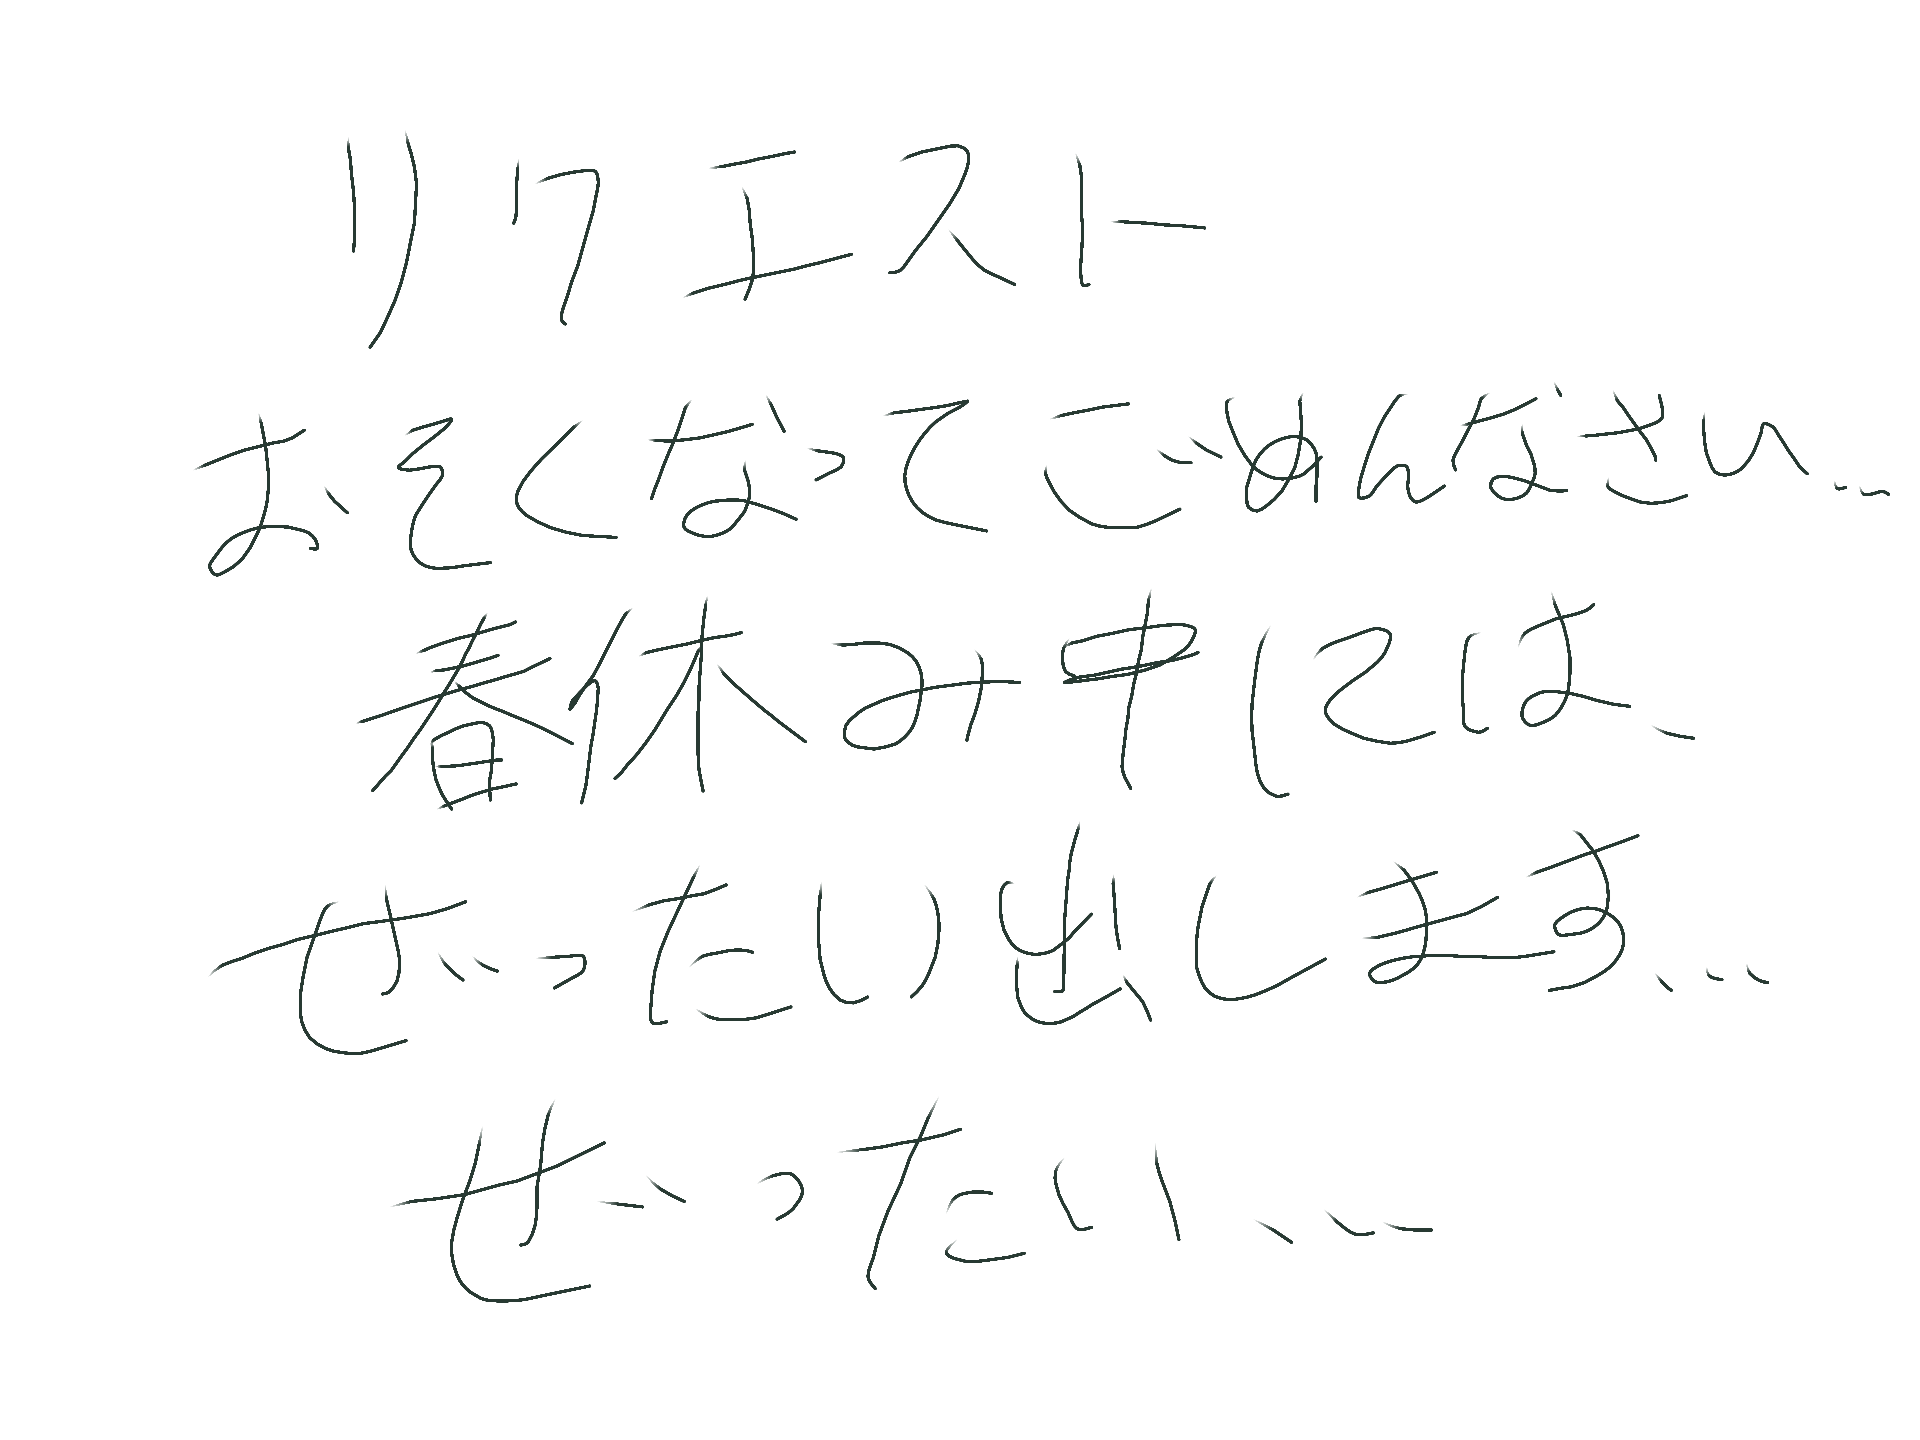 リクエスト
おそくなってごめんなさい…
春休み中には、
ぜったい出します…
ぜったい…